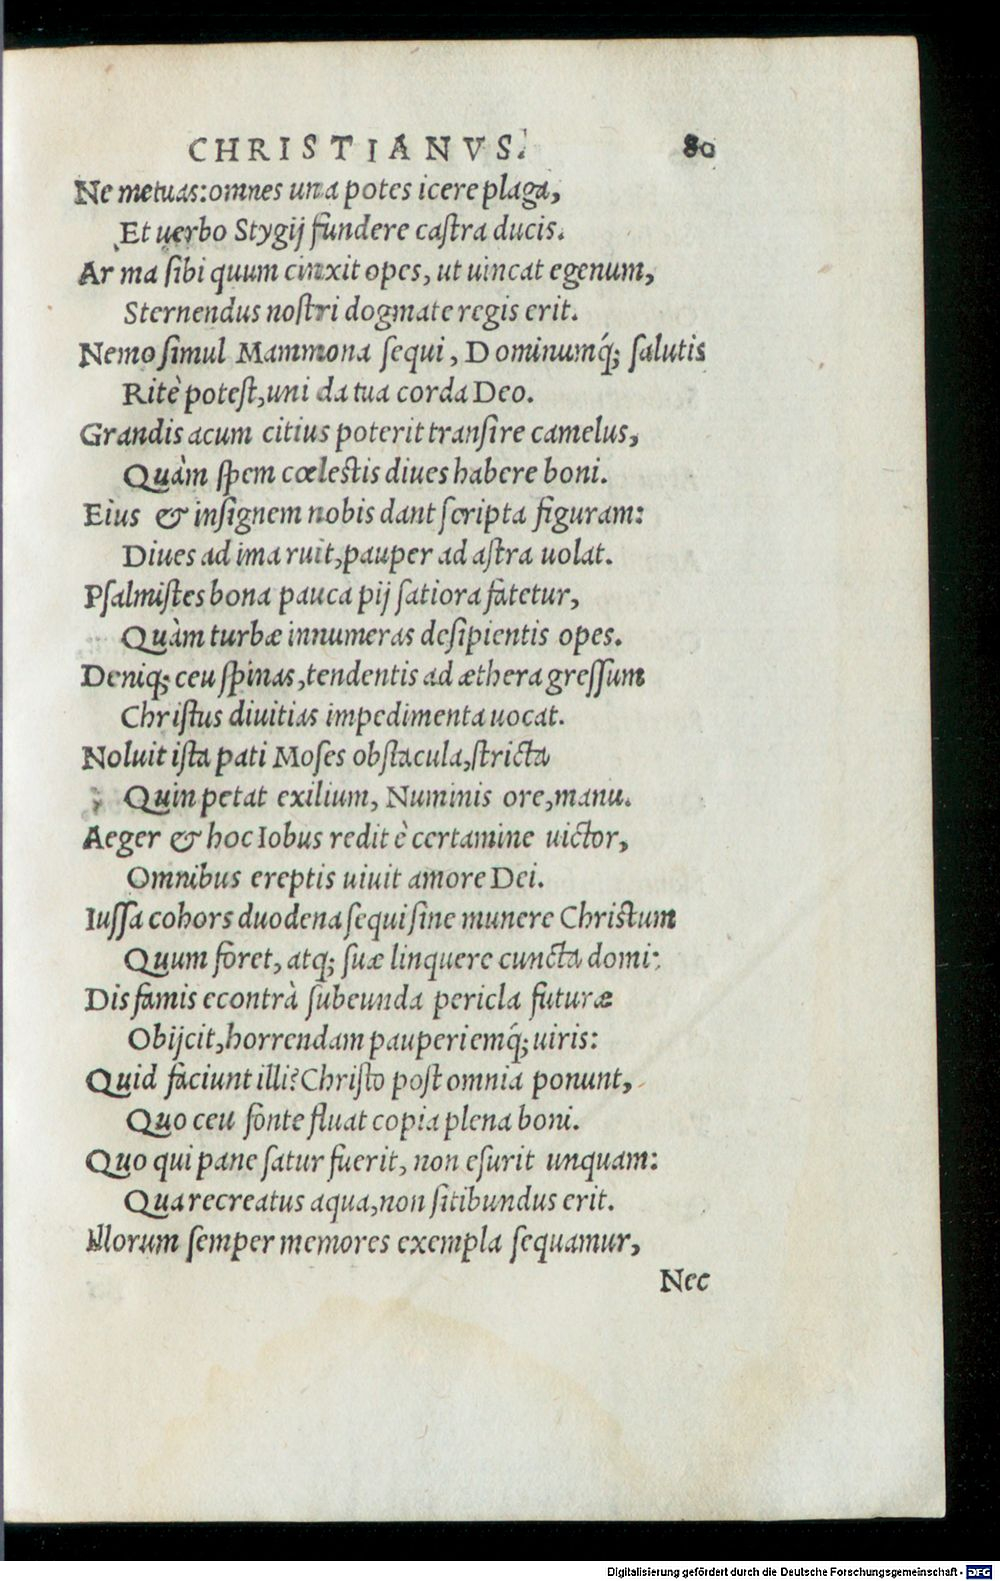 CHRISTIANVS. 80
Ne metuas: omnes una potes icere plaga,
Et uerbo Stygij fundere caſtra ducis.
Ar ma ſibi quum cinxit opes, ut uincat egenum,
Sternendus noſtri dogmate regis erit.
Nemo ſimul Mammona ſequi, Dominumq́; ſalutis
Ritè poteſt, uni da tua corda Deo.
Grandis acum citius poterit tranſire camelus,
Quàm ſpem cœleſtis diues habere boni.
Eius & inſignem nobis dant ſcripta figuram:
Diues ad ima ruit, pauper ad aſtra uolat.
Pſalmiſtes bona pauca pij ſatiora fatetur,
Quàm turbæ innumeras deſipientis opes.
Deniq; ceu ſpinas, tendentis ad æthera greſſum
Chriſtus diuitias impedimenta uocat.
Noluit iſta pati Moſes obſtacula, ſtricta
Quin petat exilium, Numinis ore, manu.
Aeger & hoc Iobus redit è certamine uictor,
Omnibus ereptis uiuit amore Dei.
Iuſſa cohors duodena ſequi ſine munere Chriſtum
Quum foret, atq; ſuæ linquere cuncta domi:
Dis famis econtrà ſubeunda pericla futuræ
Obijcit, horrendam pauperiemq́; uiris:
Quid faciunt illi? Chriſto poſt omnia ponunt,
Quo ceu fonte fluat copia plena boni.
Quo qui pane ſatur fuerit, non eſurit unquam:
Qua recreatus aqua, non ſitibundus erit.
Illorum ſemper memores exempla ſequamur,
Nec
Digitalisierung gefördert durch die Deutsche Forschungsgemeinschaft - DFG